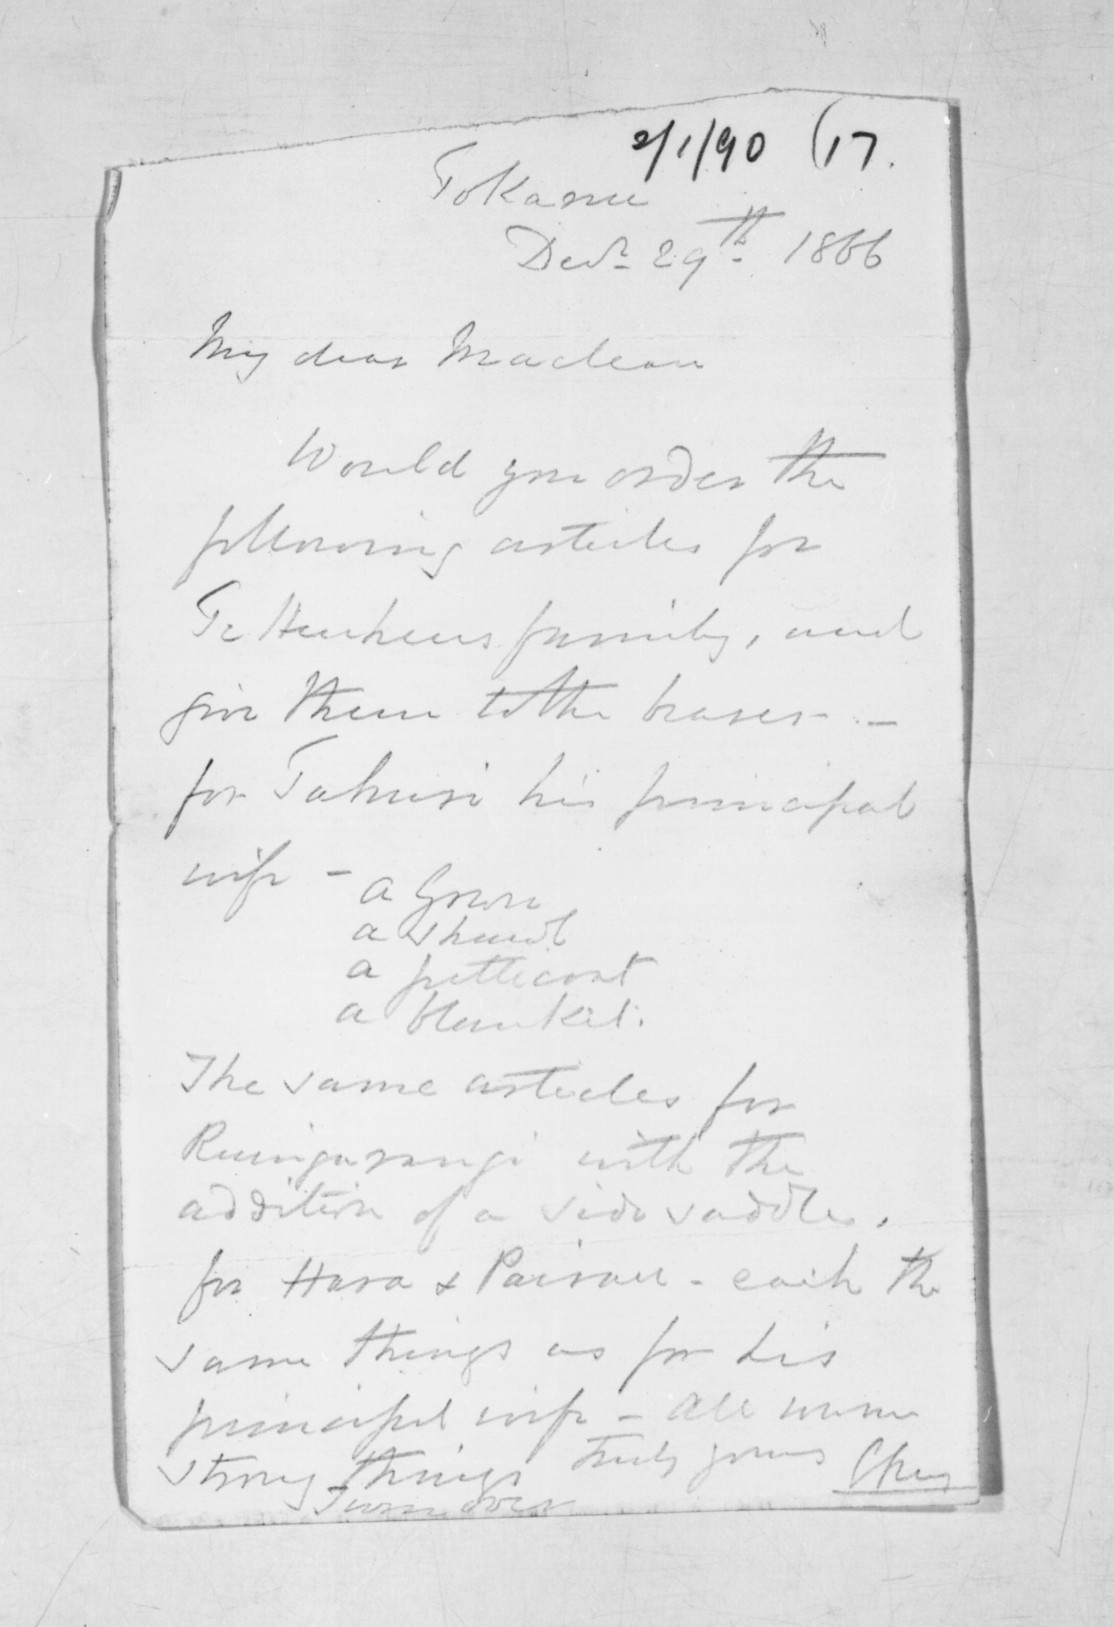 2/1/90 (17.
Tokanu
Decr 29th. 1866
My dear Maclean
Would you order the
following articles for
Te Heuheus family, and
give them to the bearer -
for Tahuri his principal
wife - a Gown
a shawl
a petticoat
a blanket.
The same articles for
Ruingarangi with the
addition of a side saddle.
for Hara & Pairau - each the
same things as for his
principal wife - All warm
strong things Truly yours
Turn over